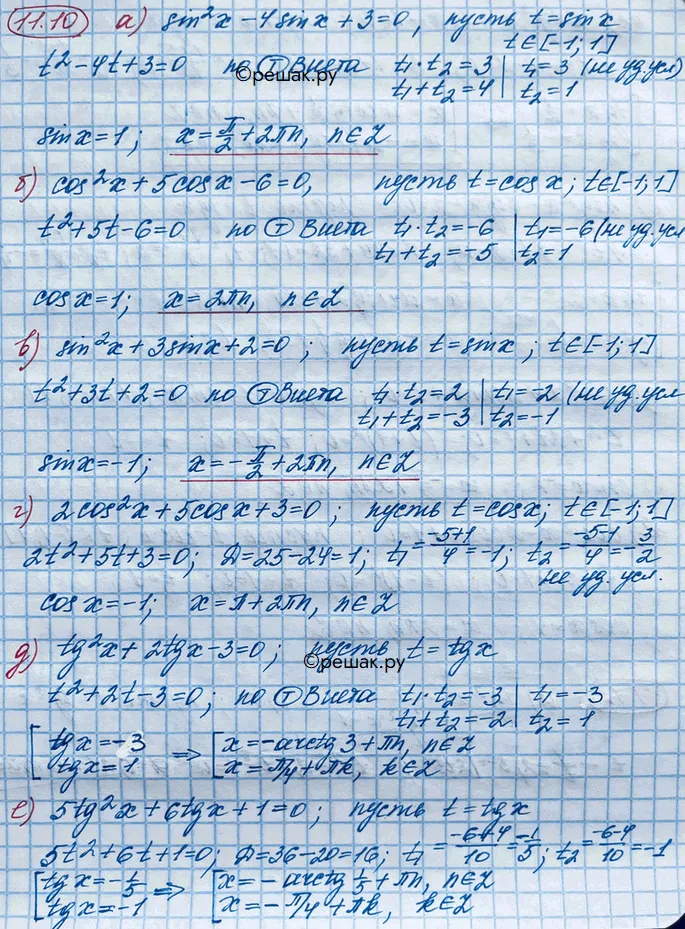 11.10 а) sin²x - 4sinx + 3 = 0, пусть t = sinx
t ∈ [-1; 1]
t² - 4t + 3 = 0 по Ⓣ Виета t₁·t₂ = 3 | t₁ = 3 (не уд. усл)
©решак.ру t₁ + t₂ = 4 | t₂ = 1
sinx = 1; x = π/2 + 2πn, n ∈ Z
б) cos²x + 5cosx - 6 = 0, пусть t = cosx; t ∈ [-1; 1]
t² + 5t - 6 = 0 по Ⓣ Виета t₁·t₂ = -6 | t₁ = -6 (не уд. усл
t₁ + t₂ = -5 | t₂ = 1
cosx = 1; x = 2πn, n ∈ Z
в) sin²x + 3sinx + 2 = 0; пусть t = sinx; t ∈ [-1; 1]
t² + 3t + 2 = 0 по Ⓣ Виета t₁·t₂ = 2 | t₁ = -2 (не уд. усл
t₁ + t₂ = -3 | t₂ = -1
sinx = -1; x = -π/2 + 2πn, n ∈ Z
г) 2cos²x + 5cosx + 3 = 0; пусть t = cosx; t ∈ [-1; 1]
2t² + 5t + 3 = 0; Д = 25 - 24 = 1; t₁ = (-5+1)/4 = -1; t₂ = (-5-1)/4 = -3/2
не уд. усл.
cosx = -1; x = π + 2πn, n ∈ Z
д) tg²x + 2tgx - 3 = 0; пусть t = tgx
©решак.ру
t² + 2t - 3 = 0; по Ⓣ Виета t₁·t₂ = -3 | t₁ = -3
t₁ + t₂ = -2 | t₂ = 1
[ tgx = -3 ⇒ [ x = -arctg3 + πn, n ∈ Z
tgx = 1 x = π/4 + πk, k ∈ Z
е) 5tg²x + 6tgx + 1 = 0; пусть t = tgx
5t² + 6t + 1 = 0; Д = 36 - 20 = 16; t₁ = (-6+4)/10 = -1/5; t₂ = (-6-4)/10 = -1
[ tgx = -1/5 ⇒ [ x = -arctg 1/5 + πn, n ∈ Z
tgx = -1 x = -π/4 + πk, k ∈ Z